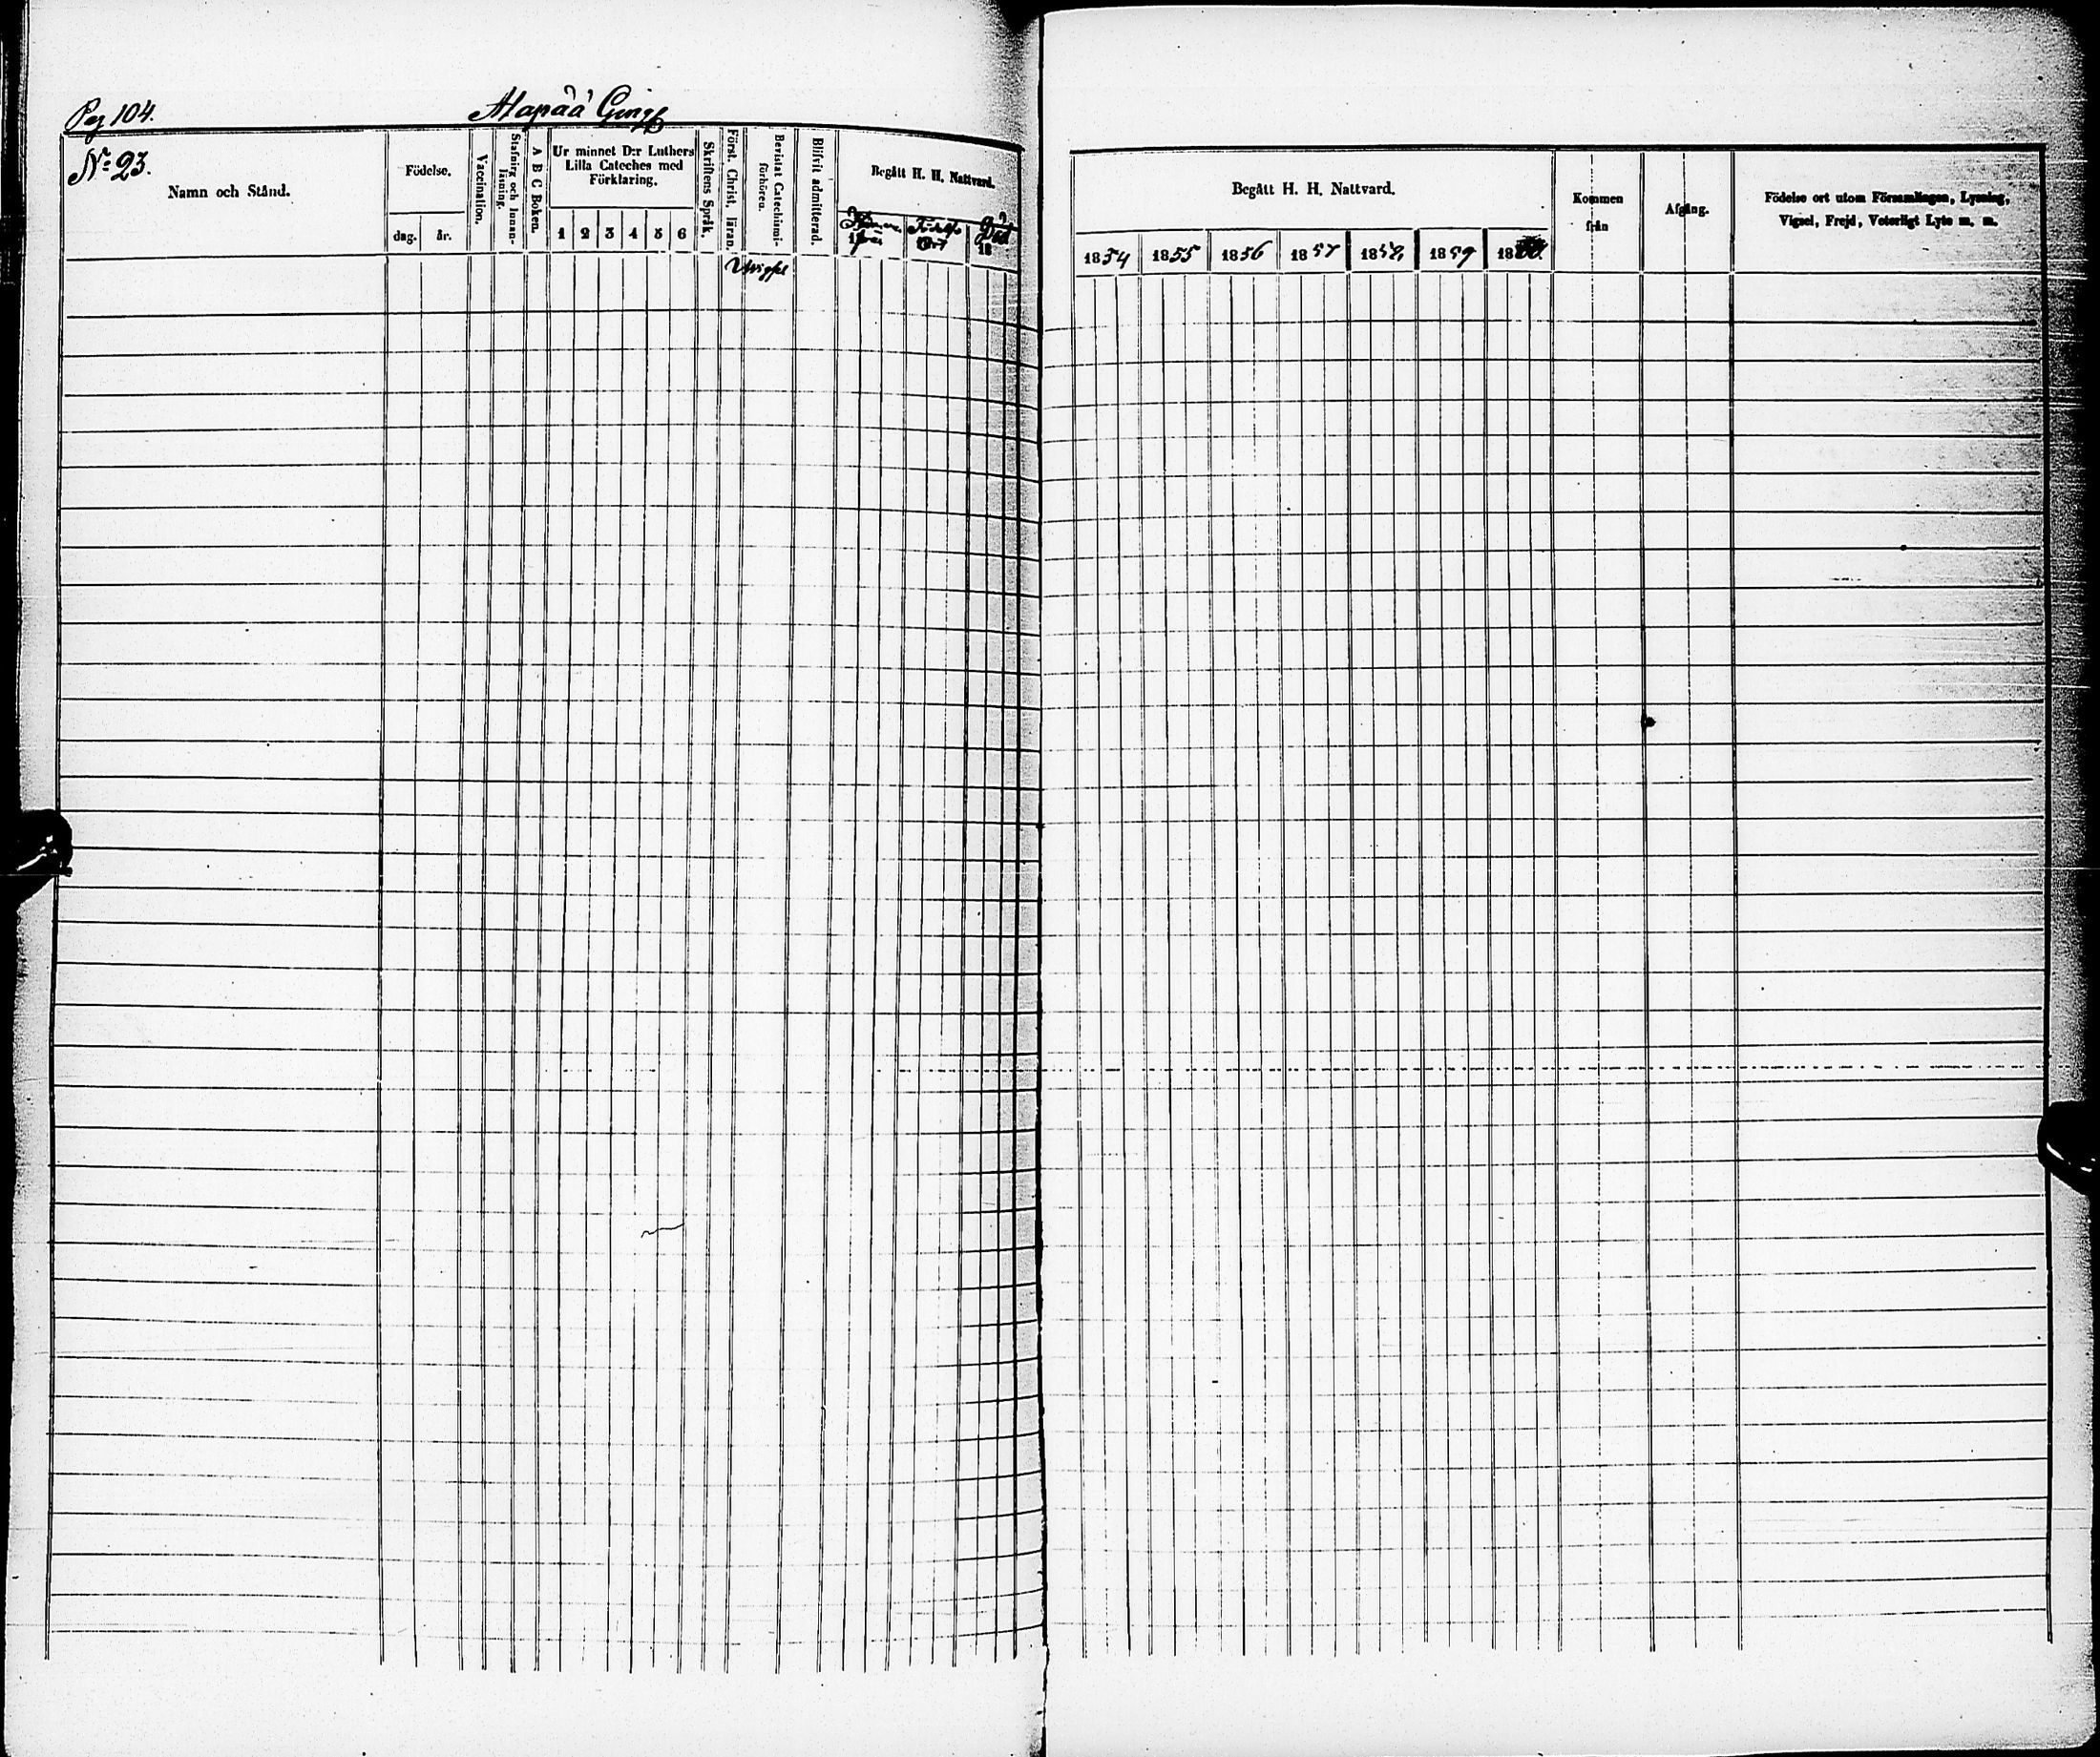 Pag 104.
Alapää
No 23.
Namn och Stånd.
Födelse.
dag. år.
Vaccination.
Stafning och Innan-
läsning.
A B C Boken.
Ur minnet D:r Luthers
Lilla Cateches med
Förklaring.
1 2 3 4 5 6
Skriftens Språk.
Först. Christ. läran.
Bevistat Catechismi-
förhören.
Blifvit admitterad.
Begått H. H. Nattvard.
Död
18
Begått H. H. Nattvard.
1854 1855 1856 1857 1858 1859 1860
Kommen
från
Afgång.
Födelse ort utom Församlingen, Lysning,
Vigsel, Frejd, Veterligt Lyte m. m.